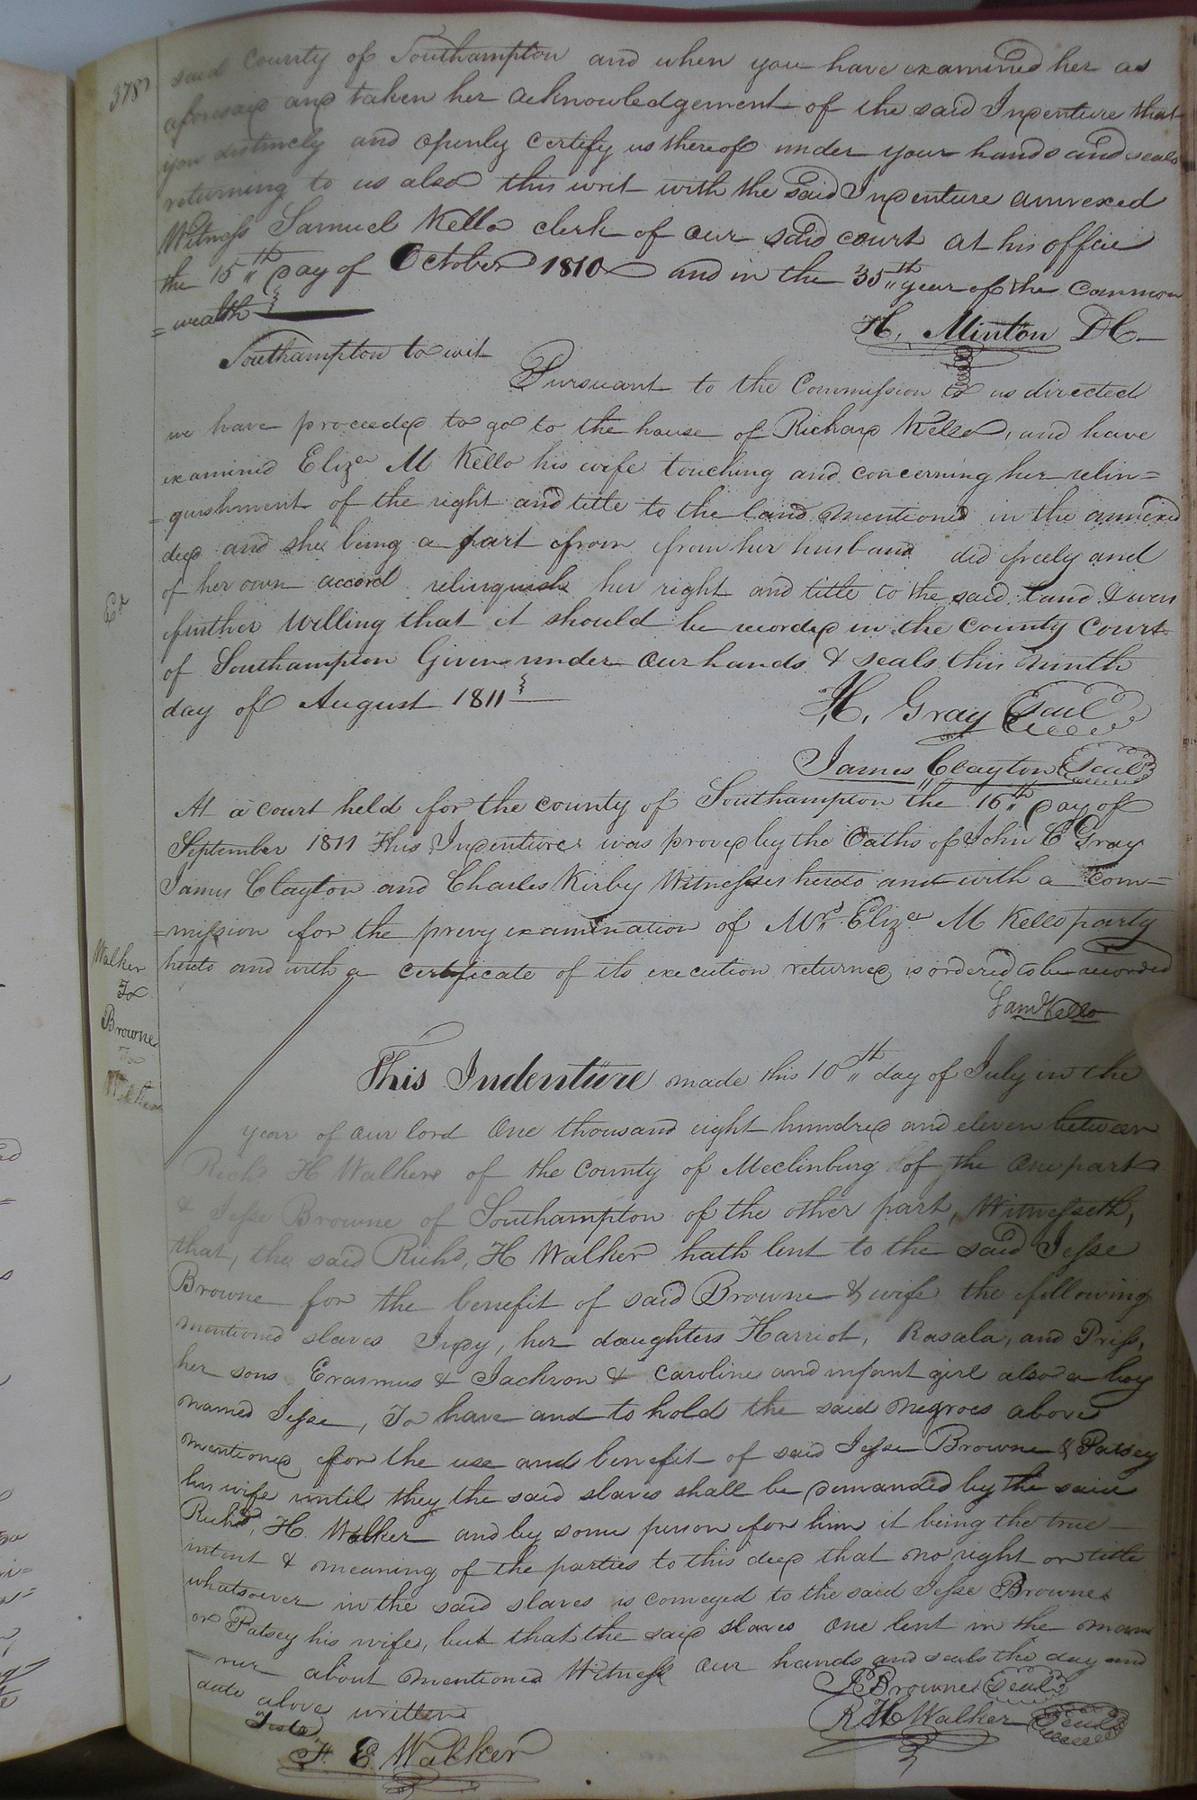 378
said County of Southampton and when you have examined her as
aforesaid and taken her acknowledgement of the said Indenture that
you distincly and openly certify us thereof under your hands and seals
returning to us also this writ with the said Indenture annexed
Witness Samuel Kello clerk of our said court at his office
the 15th day of October 1810 and in the 35th year of the Common
=wealth
H. Minton DC
Southampton to wit
Pursuant to the Commission to us directed
we have proceeded to go to the house of Richard Kello, and have
examined Eliza M Kello his wife touching and concerning her relin=
=quishment of the right and title to the land mentioned in the annexed
deed and she being a part from from her husband did freely and
of her own accord relinquish her right and title to the said land & were
further Willing that it should be recorded in the County Court
of Southampton Given under our hands & seals this ninth
day of August 1811
H. Gray Seal
James Clayton Seal
Ex
At a court held for the county of Southampton the 16th day of
September 1811 This Indenture was proved by the Oaths of John C Gray
James Clayton and Charles Kirby Witnesses hereto and with a Com=
=mission for the prevy examination of Mrs. Eliza M Kello party
hereto and with a certificate of its execution returned is ordered to be recorded
Saml Kello
Walker
To
Browne
To
Walker
This Indenture made this 10th day of July in the
year of our lord One thousand eight hundred and eleven between
Richd H Walker of the County of Meclinburg of the One part
& Jesse Browne of Southampton of the other part, Witnesseth,
that, the said Richd, H Walker hath lent to the said Jesse
Browne for the benefit of said Browne & wife the following
mentioned slaves Judy, her daughters Harriot, Rosala, and Priss,
her sons Erasmus & Jackson & Caroline and infant girl also a boy
named Jesse, To have and to hold the said negroes above
mentioned for the use and benefit of said Jesse Browne & Patsey
his wife until they the said slaves shall be demanded by the said
Richd, H. Walker and by some person for him it being the true
intent & meaning of the parties to this deed that no right or title
whatsoever in the said slaves is conveyed to the said Jesse Browne
or Patsey his wife, but that the said slaves are lent in the man
=ner about mentioned Witness our hands and seals the day and
date above written
J Browne Seal
R H Walker Seal
Teste
F. E. Walker